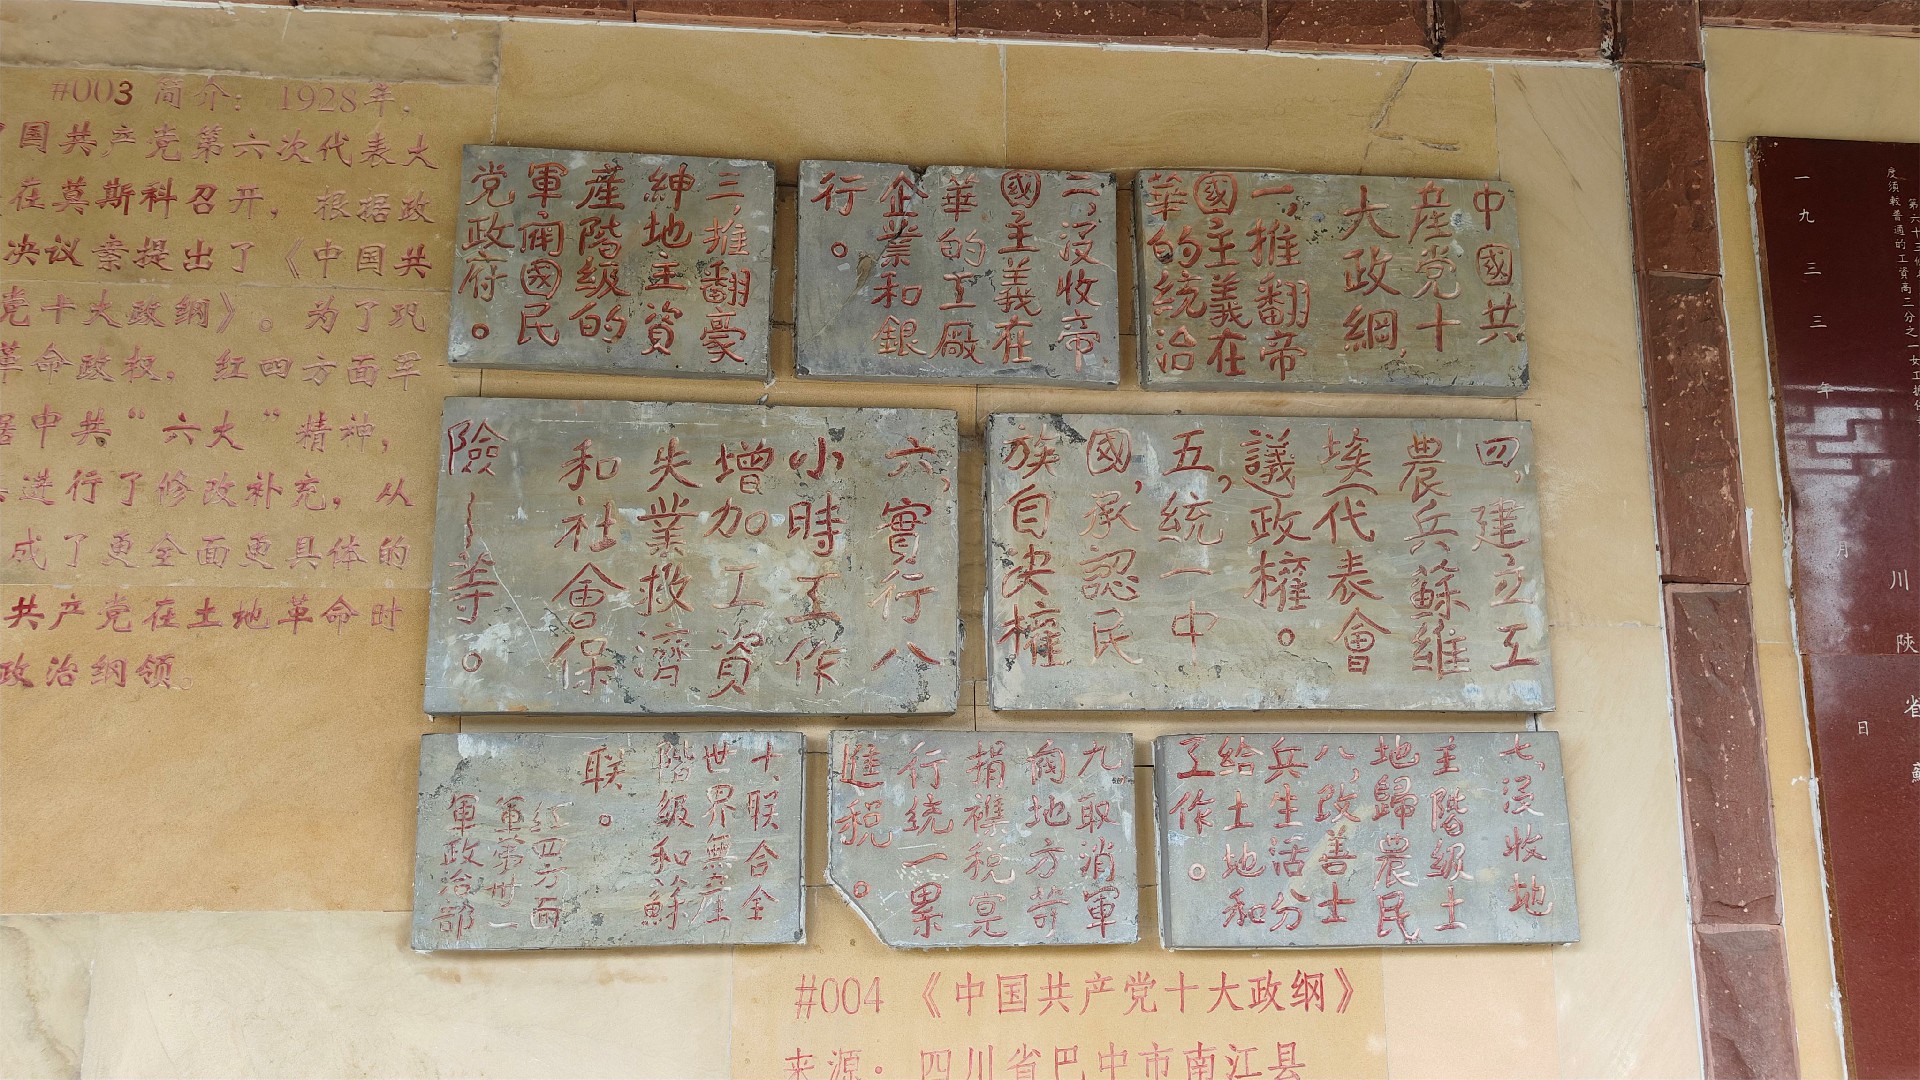 #003 简介：1928年，
国共产党第六次代表大
在莫斯科召开，根据政
决议案提出了《中国共
党十大政纲》。为了巩
革命政权，红四方面军
据中共“六大”精神，
进行了修改补充，从
成了更全面更具体的
共产党在土地革命时
政治纲领。
中國共
産党十
大政綱，
一，推翻帝
國主義在
華的統治
二，没收帝
國主義在
華的工廠
企業和銀
行。
三，推翻豪
紳地主資
産階級的
軍阀國民
党政府。
四，建立工
農兵蘇維
埃代表會
議政權。
五，統一中
國，承認民
族自决權
六，實行八
小時工作
增加工資
失業救濟
和社會保
險～等。
七，没收地
主階级土
地歸農民
八，改善士
兵生活分
给土地和
工作。
九取消軍
阀地方等
捐襍税完
行统一累
進税。
十，联合全
世界無産
階級和蘇
联。
红四方面
軍第卅一
軍政治部
#004 《中国共产党十大政纲》
来源：四川省巴中市南江县
度須較普通的工資高二分之一女工
川陝省蘇
一九三三年 月 日